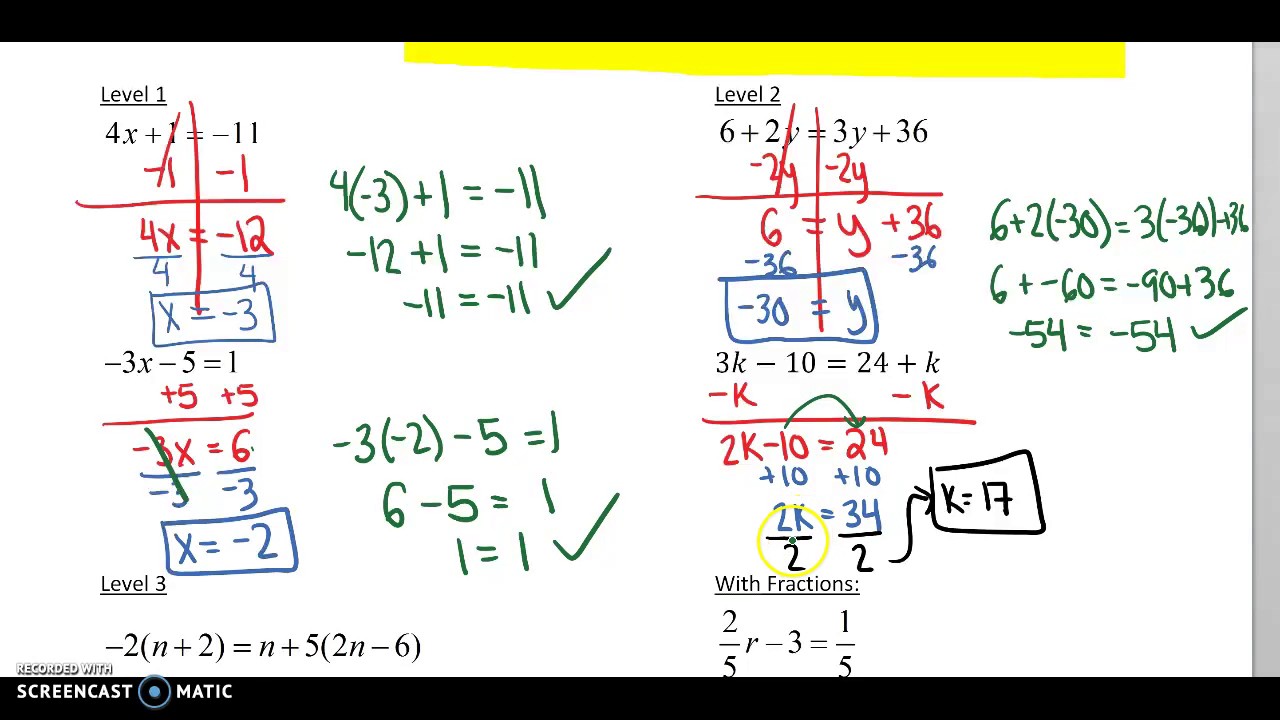 Level 1
4x + 1 = −11
-1 -1
4x = -12
4 4
x = -3
4(-3) + 1 = -11
-12 + 1 = -11
-11 = -11 ✓
−3x − 5 = 1
+5 +5
-3x = 6
-3 -3
x = -2
-3(-2) - 5 = 1
6 - 5 = 1
1 = 1 ✓
Level 3
−2(n + 2) = n + 5(2n − 6)
Level 2
6 + 2y = 3y + 36
-2y -2y
6 = y + 36
-36 -36
-30 = y
6 + 2(-30) = 3(-30) + 36
6 + -60 = -90 + 36
-54 = -54 ✓
3k − 10 = 24 + k
-K -K
2K - 10 = 24
+10 +10
2K = 34
2 2
K = 17
With Fractions:
2/5 r − 3 = 1/5
RECORDED WITH
SCREENCAST MATIC